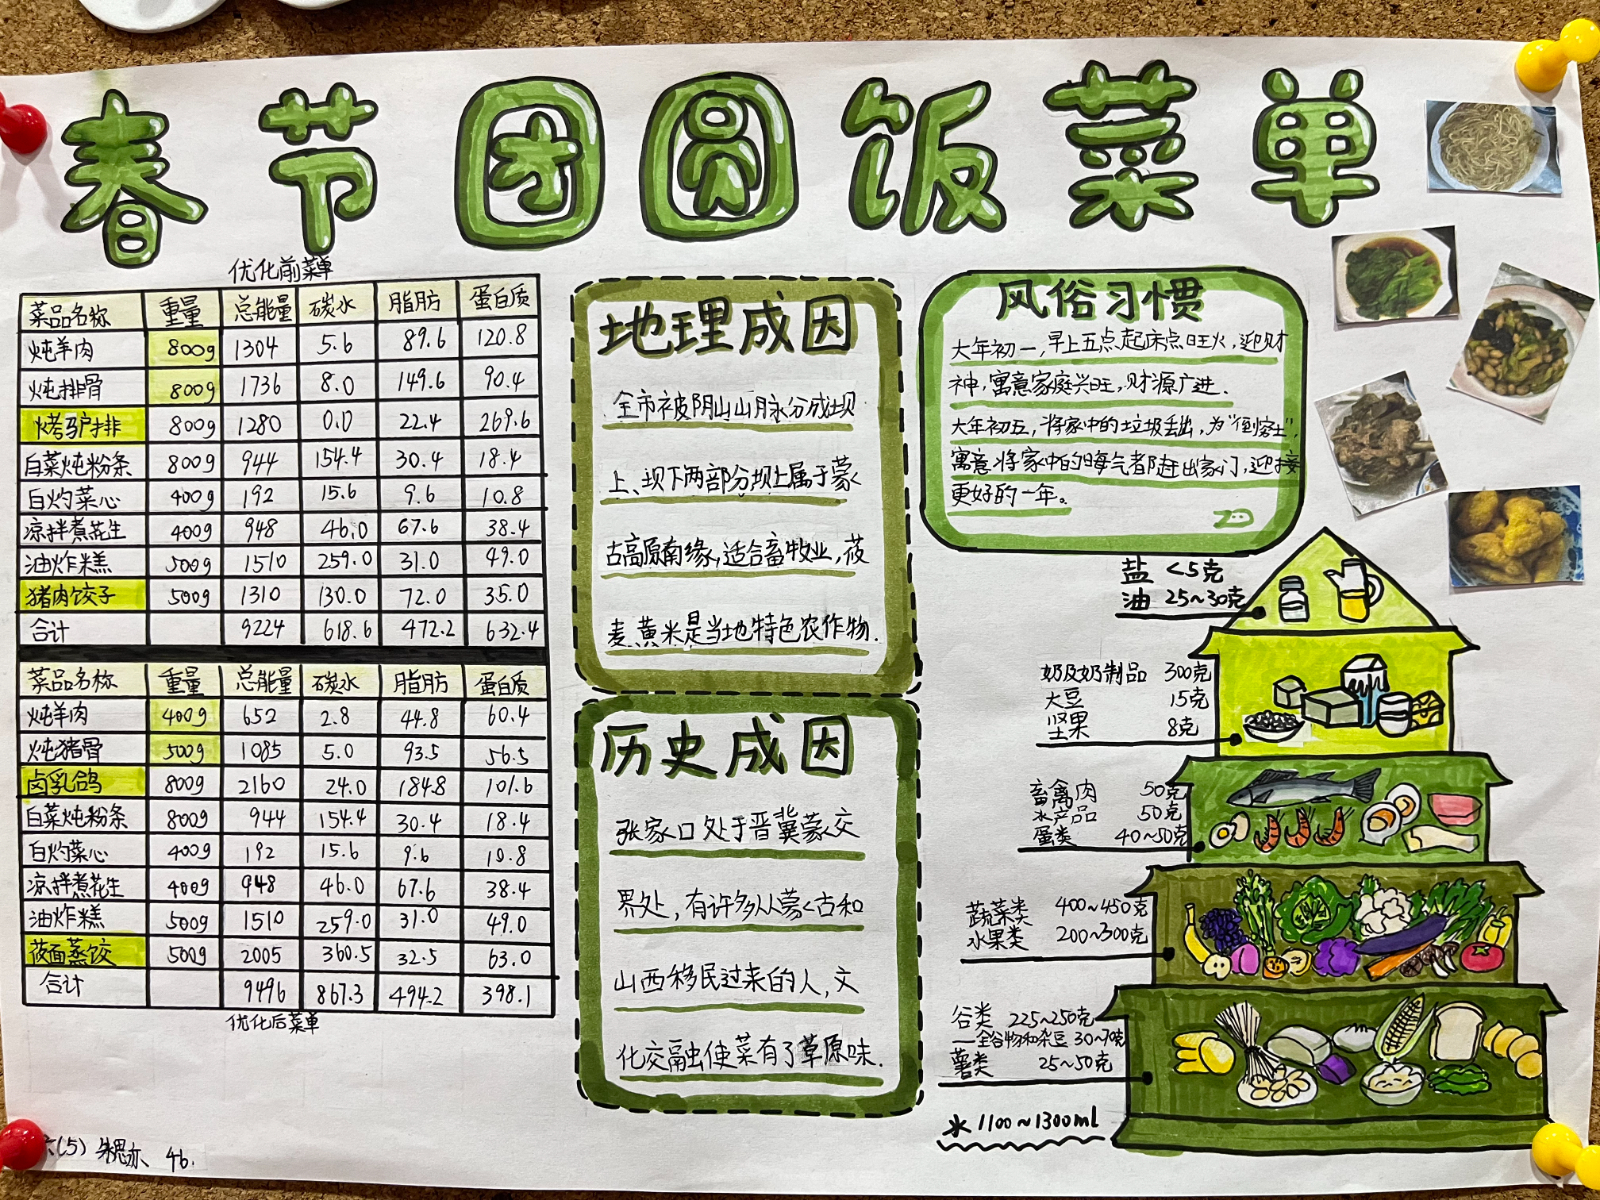 春节团圆饭菜单
优化前菜单
菜品名称 重量 总能量 碳水 脂肪 蛋白质
炖羊肉 800g 1304 5.6 89.6 120.8
炖排骨 800g 1736 8.0 149.6 90.4
烤驴排 800g 1280 0.0 22.4 269.6
白菜炖粉条 800g 944 154.4 30.4 18.4
白灼菜心 400g 192 15.6 9.6 10.8
凉拌煮花生 400g 948 46.0 67.6 38.4
油炸糕 500g 1510 259.0 31.0 49.0
猪肉饺子 500g 1310 130.0 72.0 35.0
合计 9224 618.6 472.2 632.4
菜品名称 重量 总能量 碳水 脂肪 蛋白质
炖羊肉 400g 652 2.8 44.8 60.4
炖猪骨 500g 1085 5.0 93.5 56.5
卤乳鸽 800g 2160 24.0 184.8 101.6
白菜炖粉条 800g 944 154.4 30.4 18.4
白灼菜心 400g 192 15.6 9.6 10.8
凉拌煮花生 400g 948 46.0 67.6 38.4
油炸糕 500g 1510 259.0 31.0 49.0
莜面蒸饺 500g 2005 360.5 32.5 63.0
合计 9496 867.3 494.2 398.1
优化后菜单
六(5) 46.
地理成因
全市被阴山山脉分成坝
上、坝下两部分坝上属于蒙
古高原南缘,适合畜牧业,莜
麦、黄米是当地特色农作物.
历史成因
张家口处于晋冀蒙交
界处,有许多从蒙古和
山西移民过来的人,文
化交融使菜有了草原味.
风俗习惯
大年初一,早上五点起床点旺火,迎财
神,寓意家庭兴旺,财源广进.
大年初五,将家中的垃圾丢出,为“倒穷土”,
寓意将家中的晦气都赶出家门,迎接
更好的一年。
盐 <5克
油 25~30克
奶及奶制品 300克
大豆 15克
坚果 8克
畜禽肉 50克
水产品 50克
蛋类 40~50克
蔬菜类 400~450克
水果类 200~300克
谷类 225~250克
—全谷物和杂豆 30~70克
薯类 25~50克
水 1100~1300ml